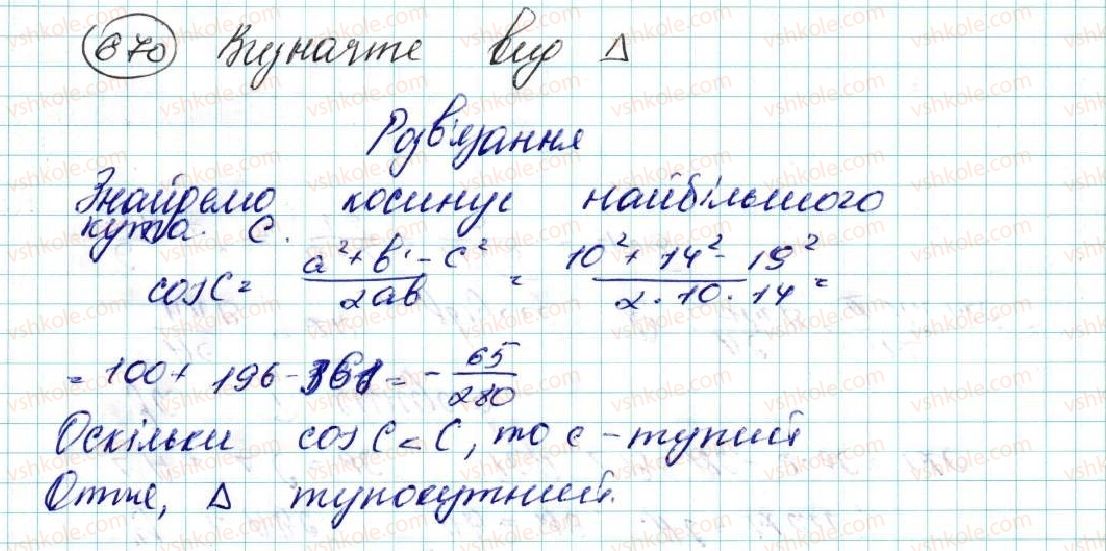 670 Визначте вид Δ
Розв'язання
Знайдемо косинус найбільшого
кута C.
cosC = (a² + b² - c²)/(2ab) = (10² + 14² - 19²)/(2·10·14) =
= 100 + 196 - 361 = -65/280
Оскільки cosC < C, то c - тупий
Отже, Δ тупокутний.